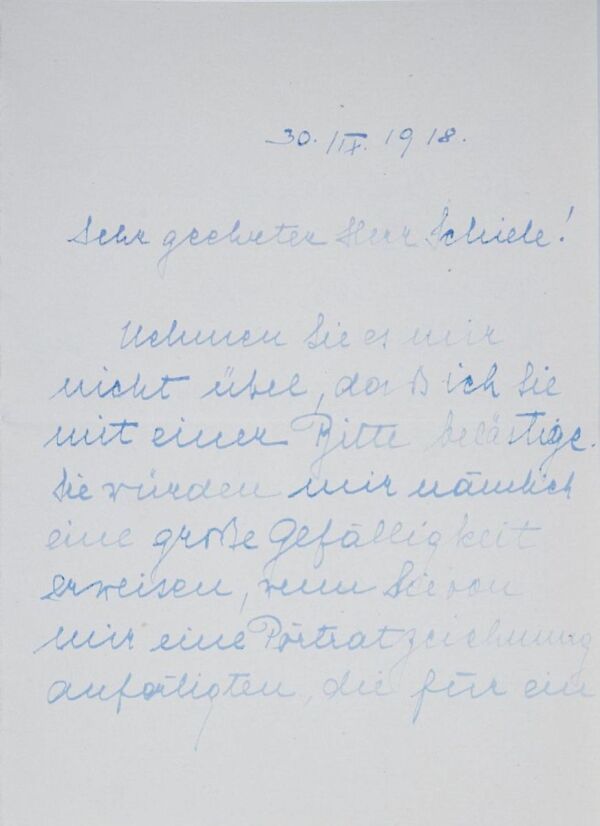 30. IX. 1918.
Sehr geehrter Herr Schiele!
Nehmen Sie es mir
nicht übel, daß ich Sie
mit einer Bitte belästige.
Sie würden mir nämlich
eine große Gefälligkeit
erweisen, wenn Sie von
mir eine Porträtzeichnung
anfertigten, die für ein